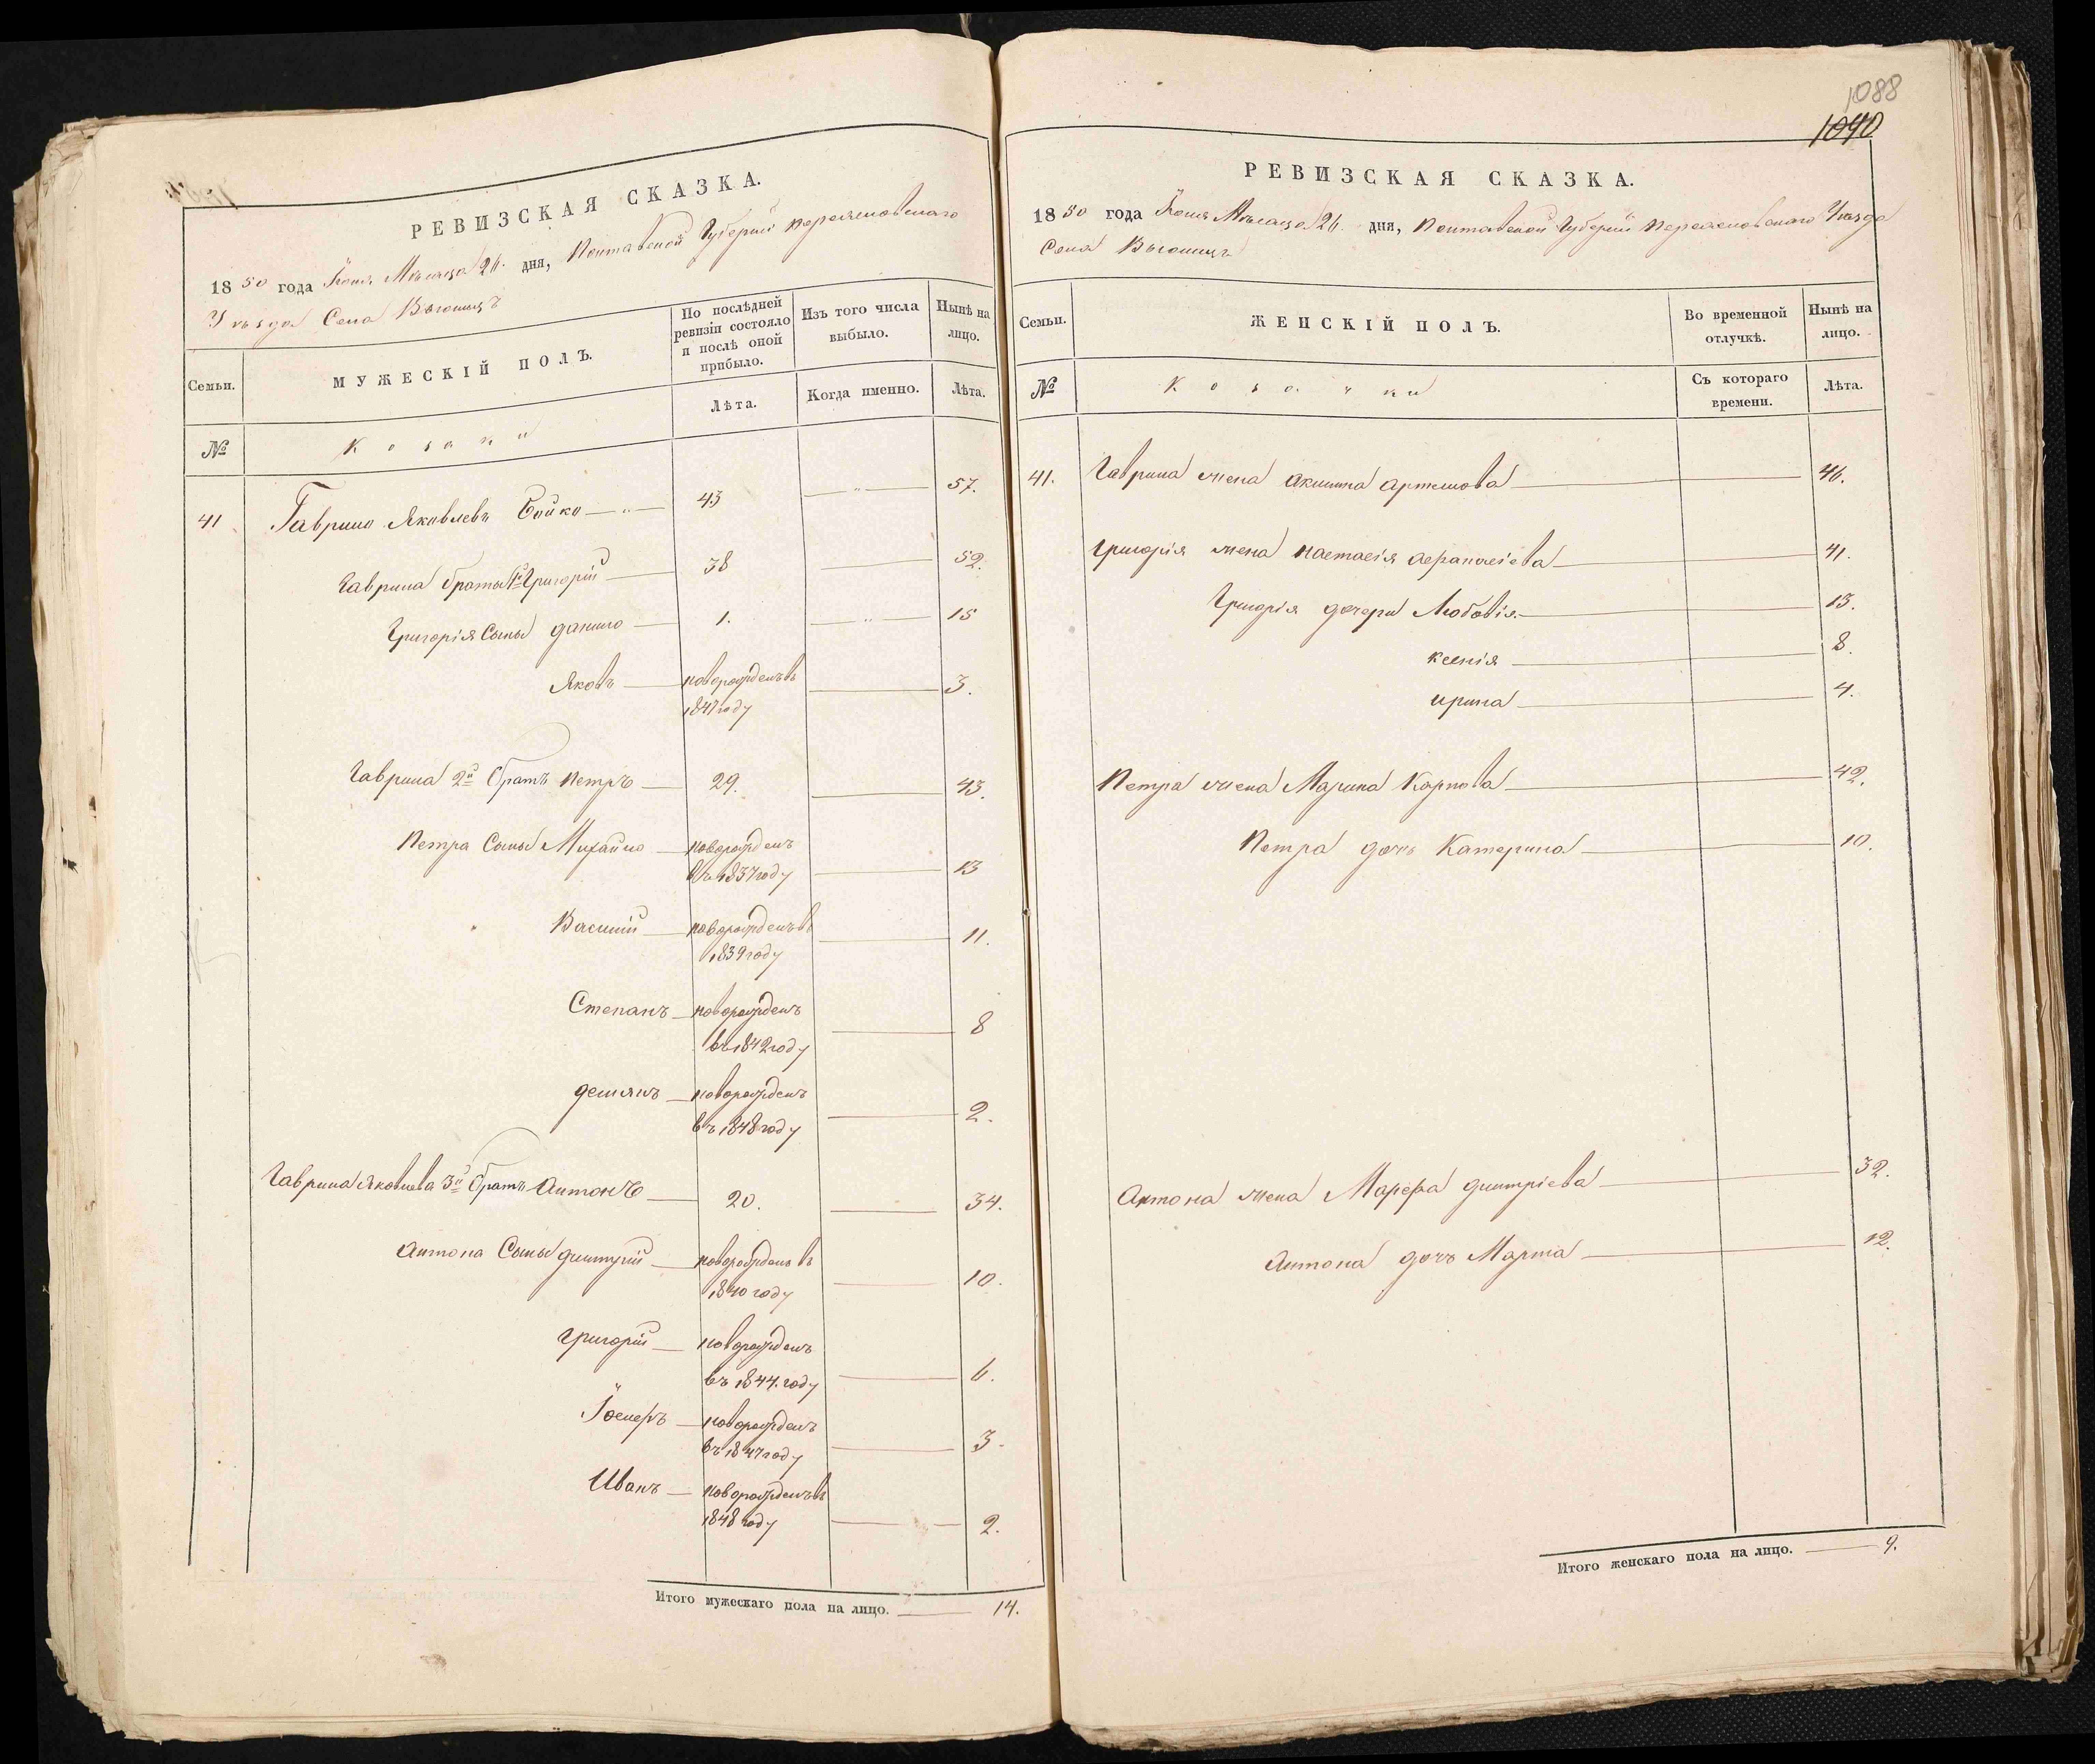 РЕВИЗСКАЯ СКАЗКА.
1850 года Іюня Мѣсяца 26. дня, Полтавской Губерніи Переясловскаго
Уѣзда Села
Семьи.
МУЖЕСКІЙ ПОЛЪ.
По послѣдней ревизіи состояло и послѣ оной прибыло.
Изъ того числа выбыло.
Нынѣ на лицо.
№
Козаки
Лѣта.
Когда именно.
Лѣта.
41 Гаврило Яковлевъ Бойко — 43 — " — 57.
Гаврила братья 1й Григорій — 38 — 52.
Григорія Сыны Данило — 1. — " — 15
Яковъ — новорожденъ въ — 3.
1847 году
Гаврила 2й братъ Петръ — 29. — 43.
Петра Сыны Михайло — новорожденъ
въ 1837 году — 13
Василій — новорожденъ въ — 11.
1839 году
Степанъ — новорожденъ
въ 1842 году — 8
Демянъ — новорожденъ
въ 1848 году — 2.
Гаврила Яковлева 3й братъ Антонъ — 20. — 34.
Антона Сыны Дмитрій — новорожденъ въ
1840 году — 10.
Григорій — новорожденъ
въ 1844. году — 6.
Іосифъ — новорожденъ
въ 1847 году — 3.
Иванъ — новорожденъ въ
1848 году — 2.
Итого мужескаго пола на лицо. — 14.
1088
1040
РЕВИЗСКАЯ СКАЗКА.
1850 года Іюня Мѣсяца 26. дня, Полтавской Губерніи Переясловскаго Уѣзда
Села
Семьи.
ЖЕНСКІЙ ПОЛЪ.
Во временной отлучкѣ.
Нынѣ на лицо.
№
Козачки
Съ котораго времени.
Лѣта.
41. Гаврила жена Акилина Артемова — 46.
Григорія жена Настасія Афанасіева — 41.
Григорія дочери Любовія — 13.
Ксенія — 8.
Ирина — 4.
Петра жена Марина Карпова — 42.
Петра дочь Катерина — 10.
Антона жена Марфа Дмитріева — 32.
Антона дочь Марта — 12.
Итого женскаго пола на лицо. — 9.